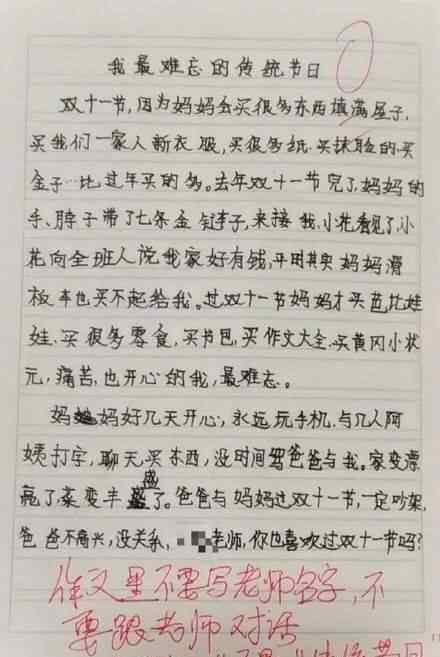 我最难忘的传统节日
双十一节,因为妈妈会买很多东西填满屋子,
买我们一家人新衣服,买很多纸.买抹脸的.买
金子…比过年买的多。去年双十一节完了,妈妈的
手、脖子带了七条金链子,来接我,小花看见了,小
花向全班人说我家好有钱,平时其实妈妈滑
板车也买不起给我。过双十一节妈妈才买芭比娃
娃.买很多零食,买书包,买作文大全.买黄冈小状
元,痛苦.也开心的我,最难忘。
妈妈好几天开心,永远玩手机.与几人阿
姨打字,聊天,买东西,没时间骂爸爸与我。家变漂
亮了,菜变丰盛了。爸爸与妈妈过双十一节,一定吵架,
爸爸不高兴,没关系,老师,你也喜欢过双十一节吗?
作文里不要写老师名字,不
要跟老师对话